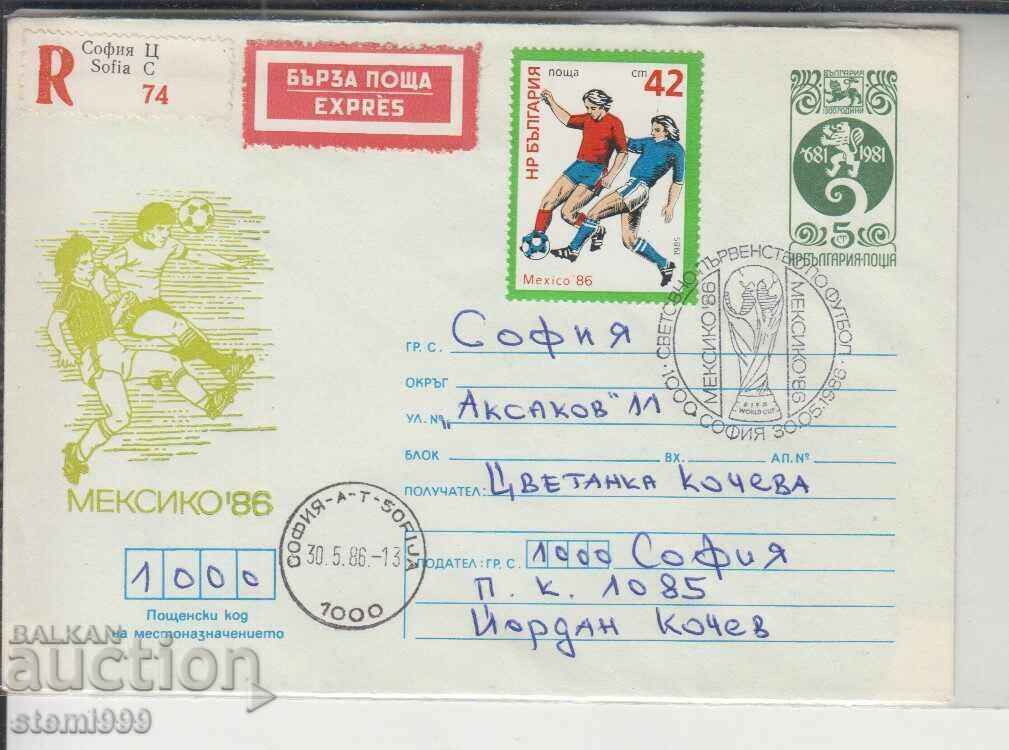 R
София Ц
Sofia C
74
БЪРЗА ПОЩА
EXPRÈS
НР БЪЛГАРИЯ
поща ст 42
1985
Mexico '86
БЪЛГАРИЯ
1300 ГОДИНИ
681 1981
5 СТ
НРБЪЛГАРИЯ·ПОЩА
СВЕТОВНО ПЪРВЕНСТВО ПО ФУТБОЛ
МЕКСИКО'86
МЕКСИКО'86
FIFA
WORLD CUP
1000 СОФИЯ 30.05.1986
ГР. С. София
ОКРЪГ
УЛ. № „Аксаков" 11
БЛОК ВХ. АП. №
ПОЛУЧАТЕЛ: Цветанка Кочева
МЕКСИКО'86
СОФИЯ-А-Т-SOFIJA
30.5.86.-13
1000
ПОДАТЕЛ: ГР. С. 1000 София
П. К. 1085
Йордан Кочев
1000
Пощенски код
на местоназначението
BALKAN
auction
stemi999